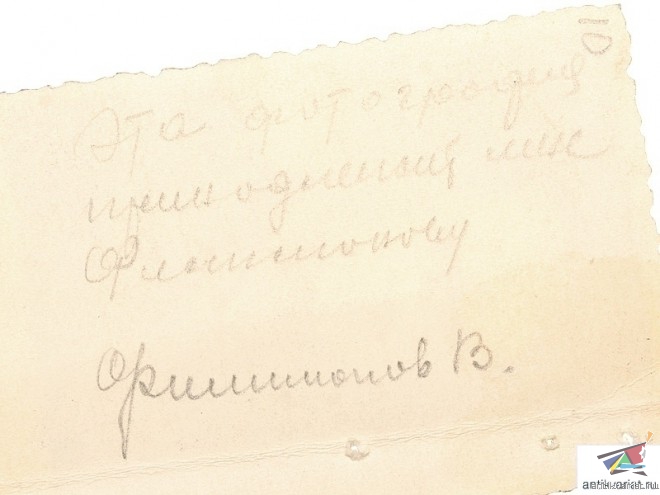 Эта фотография
принадлежит мне
Филимонову
Филимонов В.
antikvariat.ru